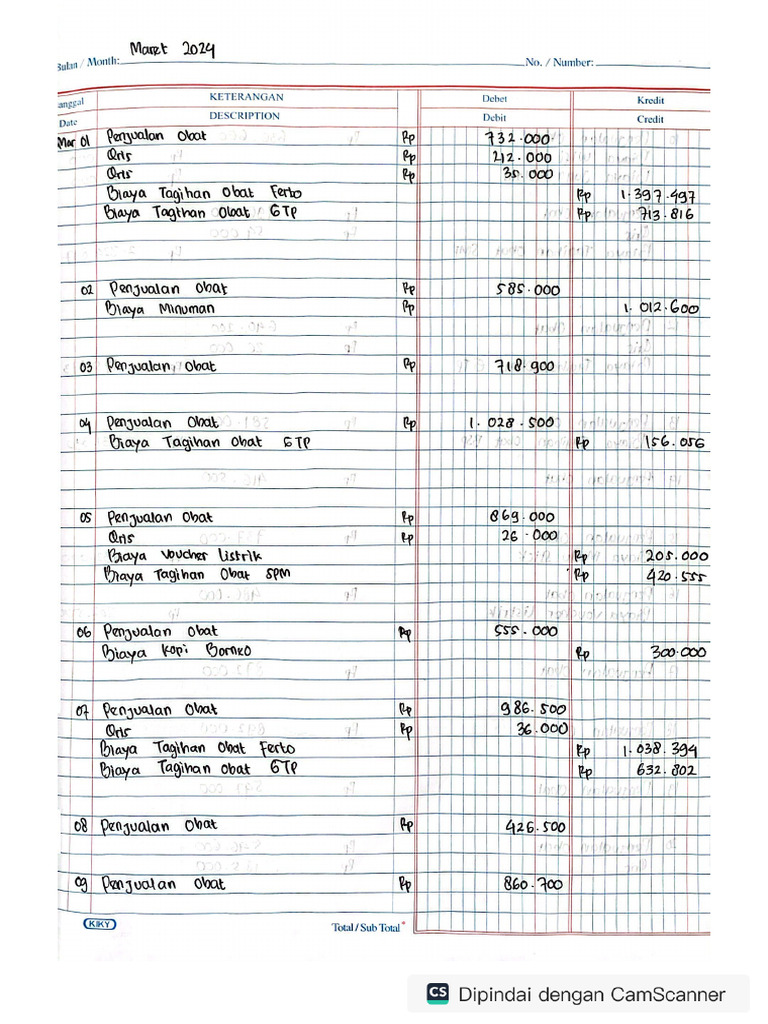 Maret 2024
Bulan / Month: No. / Number:
anggal KETERANGAN Debet Kredit
Date DESCRIPTION Debit Credit
Mar 01 Penjualan Obat Rp 732.000
Qris Rp 212.000
Qris Rp 35.000
Biaya Tagihan Obat Ferto Rp 1.397.497
Biaya Tagihan Obat GTP Rp 713.816
02 Penjualan Obat Rp 585.000
Biaya Minuman Rp 1.012.600
03 Penjualan Obat Rp 718.900
04 Penjualan Obat Rp 1.028.500
Biaya Tagihan Obat GTP Rp 156.056
05 Penjualan Obat Rp 869.000
Qris Rp 26.000
Biaya Voucher Listrik Rp 205.000
Biaya Tagihan Obat SPM Rp 420.555
06 Penjualan Obat Rp 555.000
Biaya Kopi Borneo Rp 300.000
07 Penjualan Obat Rp 986.500
Qris Rp 36.000
Biaya Tagihan Obat Ferto Rp 1.038.394
Biaya Tagihan Obat GTP Rp 632.802
08 Penjualan Obat Rp 426.500
09 Penjualan Obat Rp 860.700
KIKY Total / Sub Total
CS Dipindai dengan CamScanner